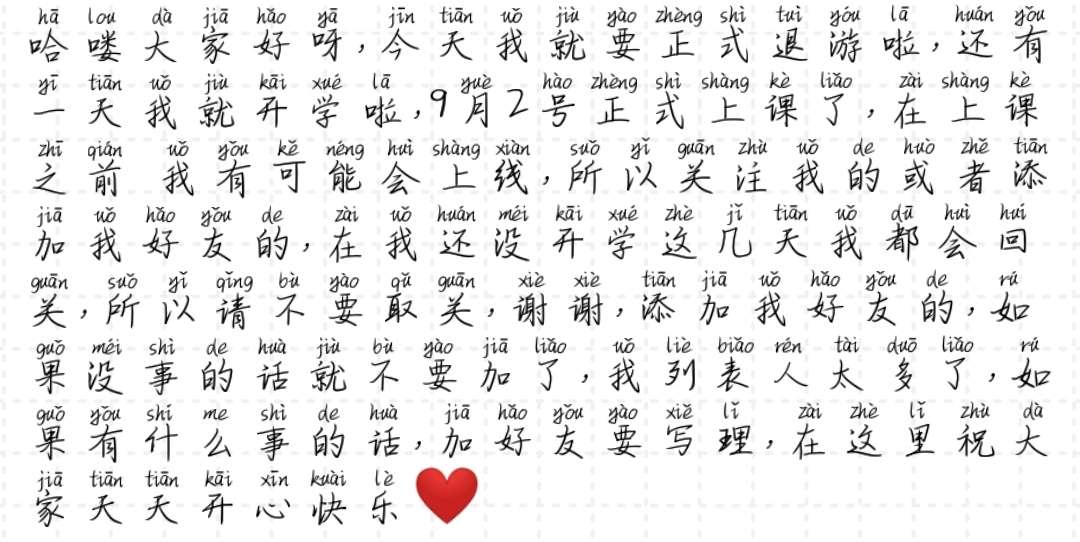 hā lou dà jiā hǎo yā jīn tiān uǒ jiù yào zhèng shì tuì yóu lā huán yǒu
哈喽大家好呀,今天我就要正式退游啦,还有
yī tiān uǒ jiù kāi xué lā yuè hào zhèng shì shàng kè liǎo zài shàng kè
一天我就开学啦,9月2号正式上课了,在上课
zhī qián uǒ yǒu kě néng huì shàng xiàn suǒ yǐ guān zhù uǒ de huò zhě tiān
之前 我有可能会上线,所以关注我的或者添
jiā uǒ hǎo yǒu de zài uǒ huán méi kāi xué zhè jǐ tiān uǒ dū huì huí
加我好友的,在我还没开学这几天我都会回
guān suǒ yǐ qǐng bù yào qǔ guān xiè xiè tiān jiā uǒ hǎo yǒu de rú
关,所以请不要取关,谢谢,添加我好友的,如
guǒ méi shì de huà jiù bù yào jiā liǎo uǒ liè biǎo rén tài duō liǎo rú
果没事的话就不要加了,我列表人太多了,如
guǒ yǒu shí me shì de huà jiā hǎo yǒu yào xiě lǐ zài zhè lǐ zhù dà
果有什么事的话,加好友要写理,在这里祝大
jiā tiān tiān kāi xīn kuài lè
家天天开心快乐❤️